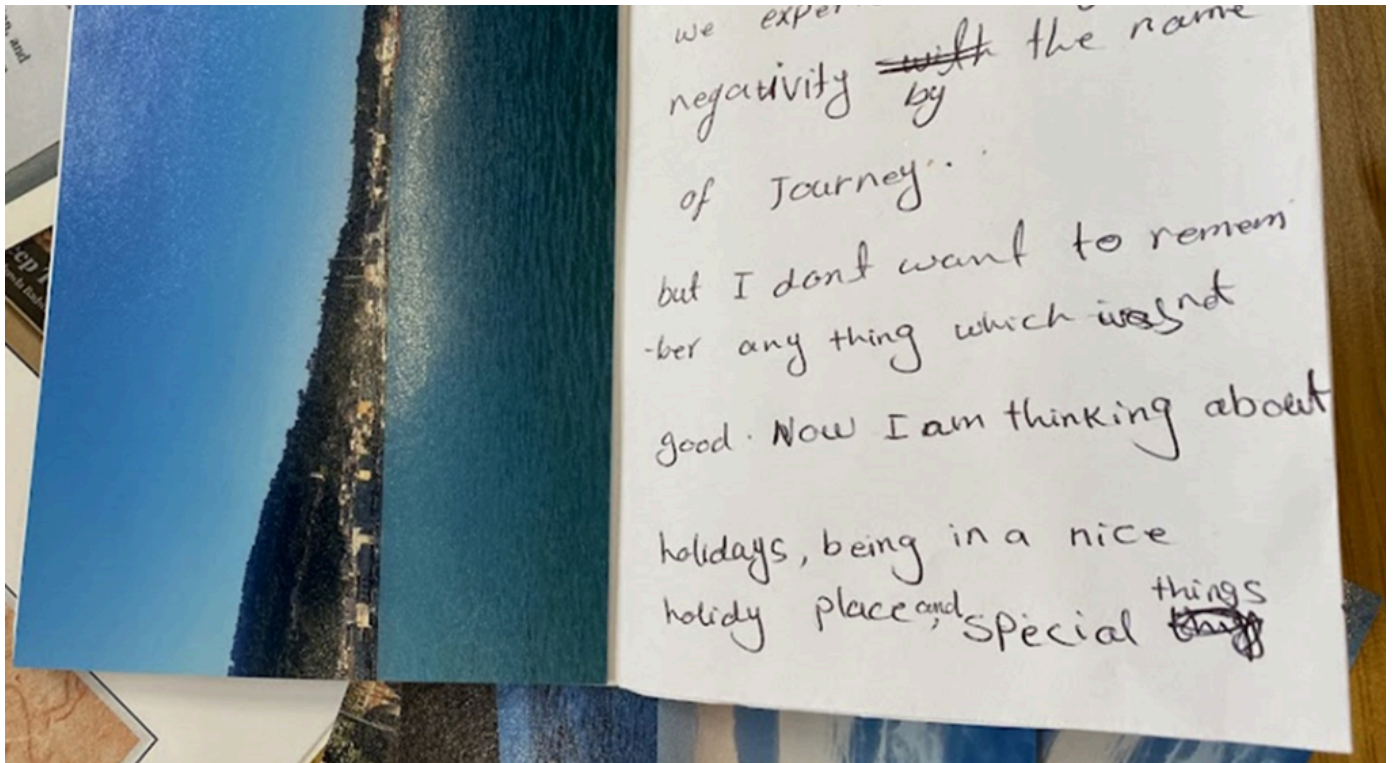 n, and
we exper
negativity by the name
of Journey...
but I dont want to remem
-ber any thing which was not
good. Now I am thinking about
holidays, being in a nice
holidy place and, special things